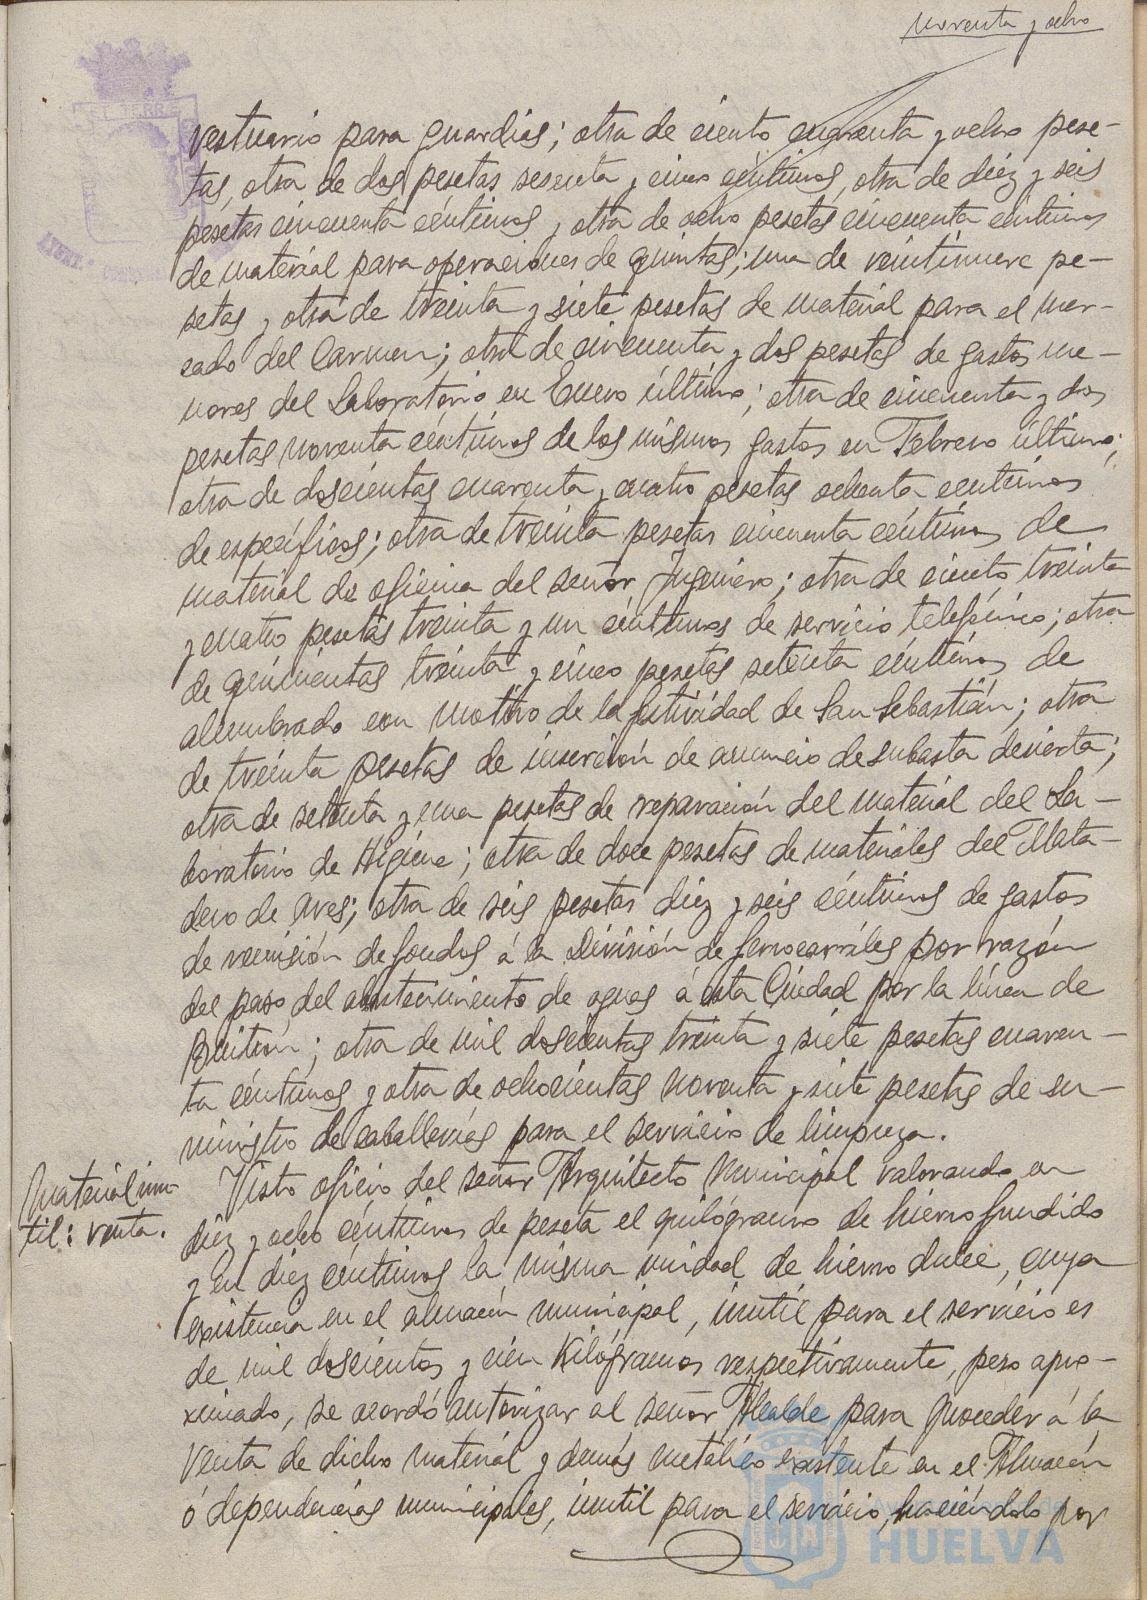 noventa y ocho
vestuario para guardias; otra de ciento cuarenta y ocho pese-
tas, otra de dos pesetas sesenta y cinco céntimos, otra de diez y seis
pesetas cincuenta céntimos y otra de ocho pesetas cincuenta céntimos
de material para operaciones de quintas; una de veintinueve pe-
setas y otra de treinta y siete pesetas de material para el mer-
cado del Carmen; otra de cincuenta y dos pesetas de gastos me-
nores del Laboratorio en Enero último; otra de cincuenta y dos
pesetas noventa céntimos de los mismos gastos en Febrero último;
otra de doscientas cuarenta y cuatro pesetas ochenta céntimos
de específicos; otra de treinta pesetas cincuenta céntimos de
material de oficina del señor Ingeniero; otra de ciento treinta
y cuatro pesetas treinta y un céntimos de servicio telefónico; otra
de quinientas treinta y cinco pesetas setenta céntimos de
alumbrado con motivo de la festividad de San Sebastián; otra
de treinta pesetas de inserción de anuncio de subasta desierta;
otra de setenta y una pesetas de reparación del material del La-
boratorio de Higiene; otra de doce pesetas de materiales del Mata-
dero de Aves; otra de seis pesetas diez y seis céntimos de gastos
de remisión de fondos á la División de ferrocarriles por razón
del paso del abastecimiento de aguas á esta Ciudad por la línea de
Buitrón; otra de mil doscientas treinta y siete pesetas cuaren-
ta céntimos y otra de ochocientas noventa y siete pesetas de su-
ministro de caballerías para el servicio de limpieza.
Material inu-
til: venta.
Visto oficio del señor Arquitecto Municipal valorando en
diez y ocho céntimos de peseta el quilógramo de hierro fundido
y en diez céntimos la misma unidad de hierro dulce, cuya
existencia en el almacén municipal, inutil para el servicio es
de mil doscientos y cien Kilógramos respectivamente, peso apro-
ximado, se acordó autorizar al señor Alcalde para proceder á la
venta de dicho material y demás metálico existente en el Almacén
ó dependencias municipales, inutil para el servicio, haciéndolo por
HUELVA